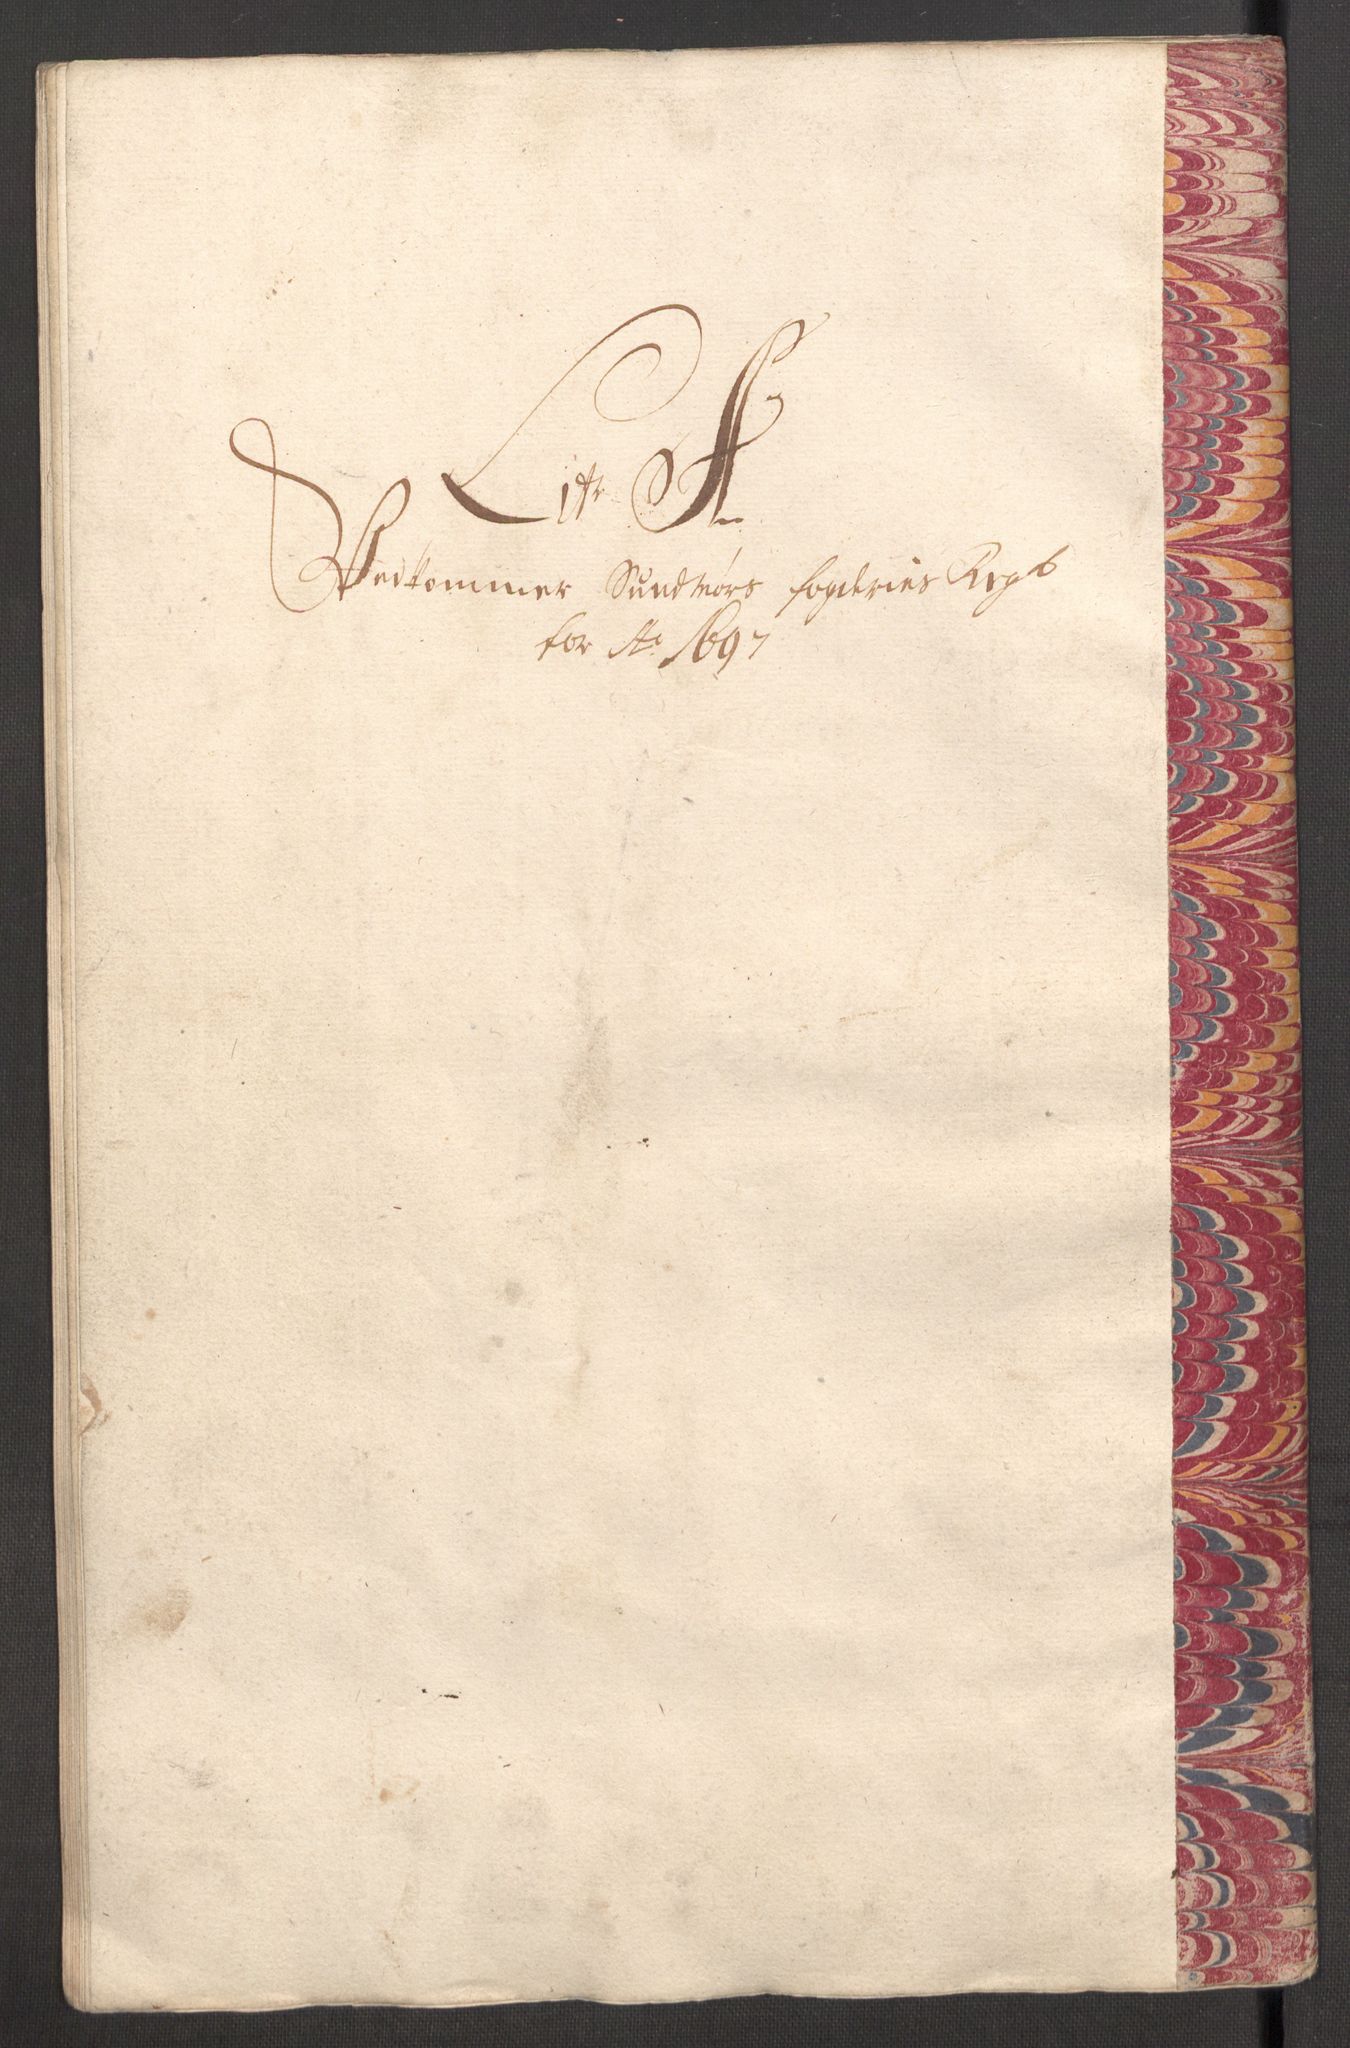 Litr A
Vedkommer Sundmørs fogderies Regb
for Ao 1697